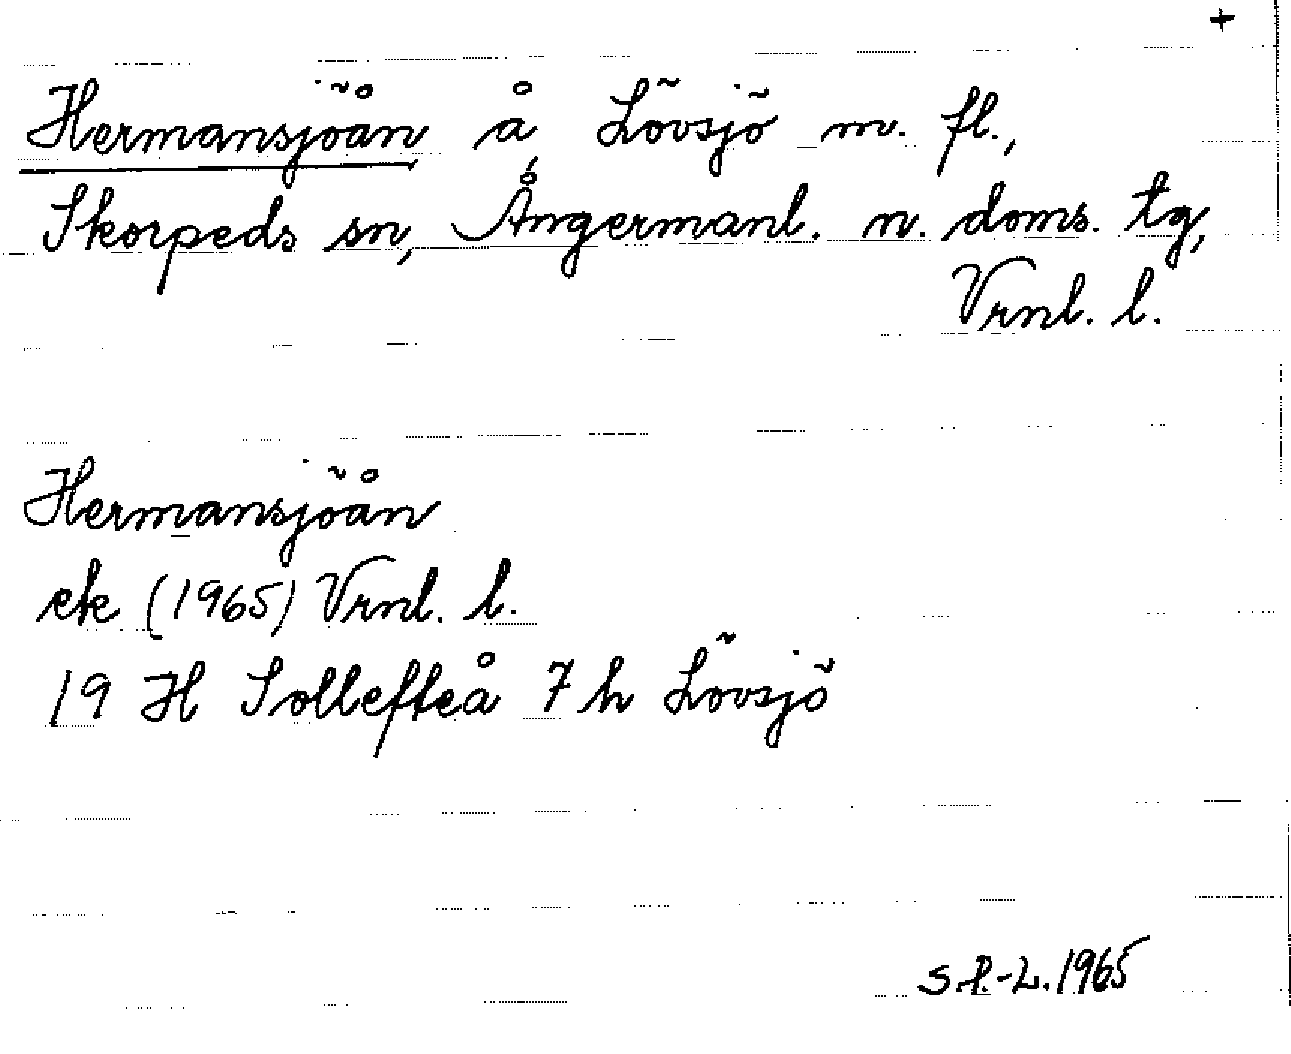 +
Hermansjöån å, Lövsjö m. fl.,
Skorpeds sn, Ångermanl. n. doms. tg,
Vrnl. l.
Hermansjöån
ek (1965) Vrnl. l.
19 H Sollefteå 7 h Lövsjö
S.P.-L. 1965